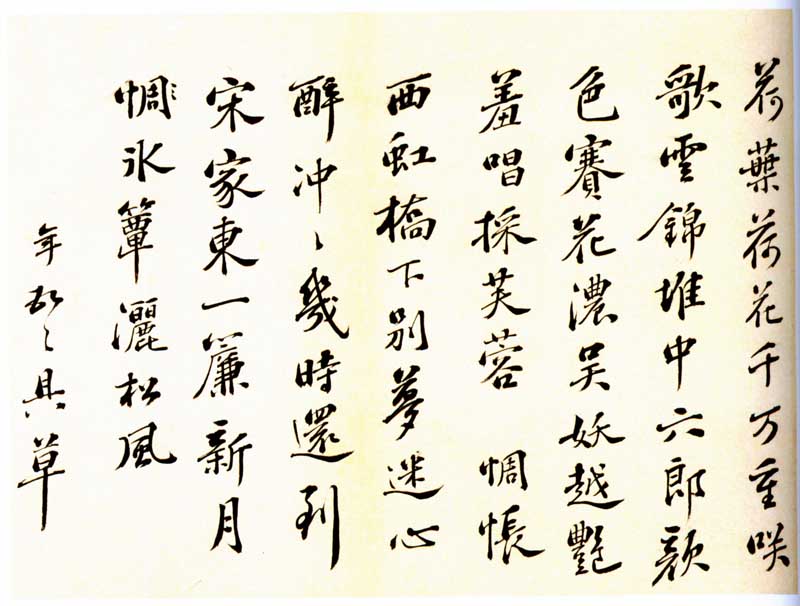 荷葉荷花千万重咲
歌雲錦堆中六郎顔
色賽花濃吴妖越艷
羞唱採芙蓉 惆悵
西虹橋下别夢迷心
醉冲〻幾時還到
宋家東一簾新月
惆氷簟灑松風
年〻具草